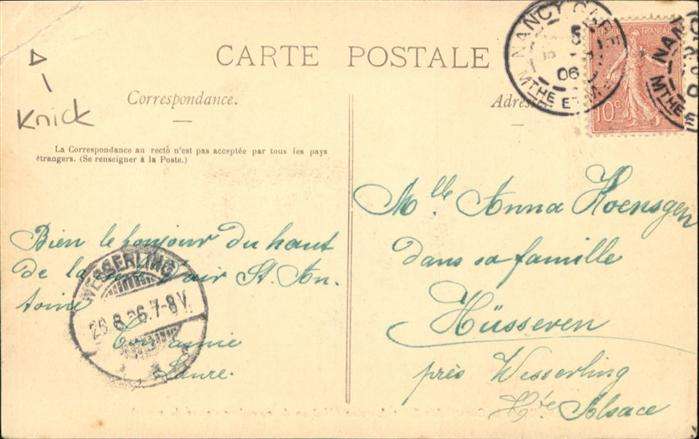 CARTE POSTALE
Knick
Correspondance.
Adresse
La Correspondance au recto n'est pas acceptée par tous les pays
étrangers. (Se renseigner à la Poste.)
NANCY GARE
06
MTHE ET M
10c
NAN
MTHE
Bien le bonjour du haut
de la air St. An-
toine
Laure.
WESSERLING
26.8.06.7-8V.
Mlle Anna Hoensgen
dans sa famille
Hüsseren
près Wesserling
Hte Alsace